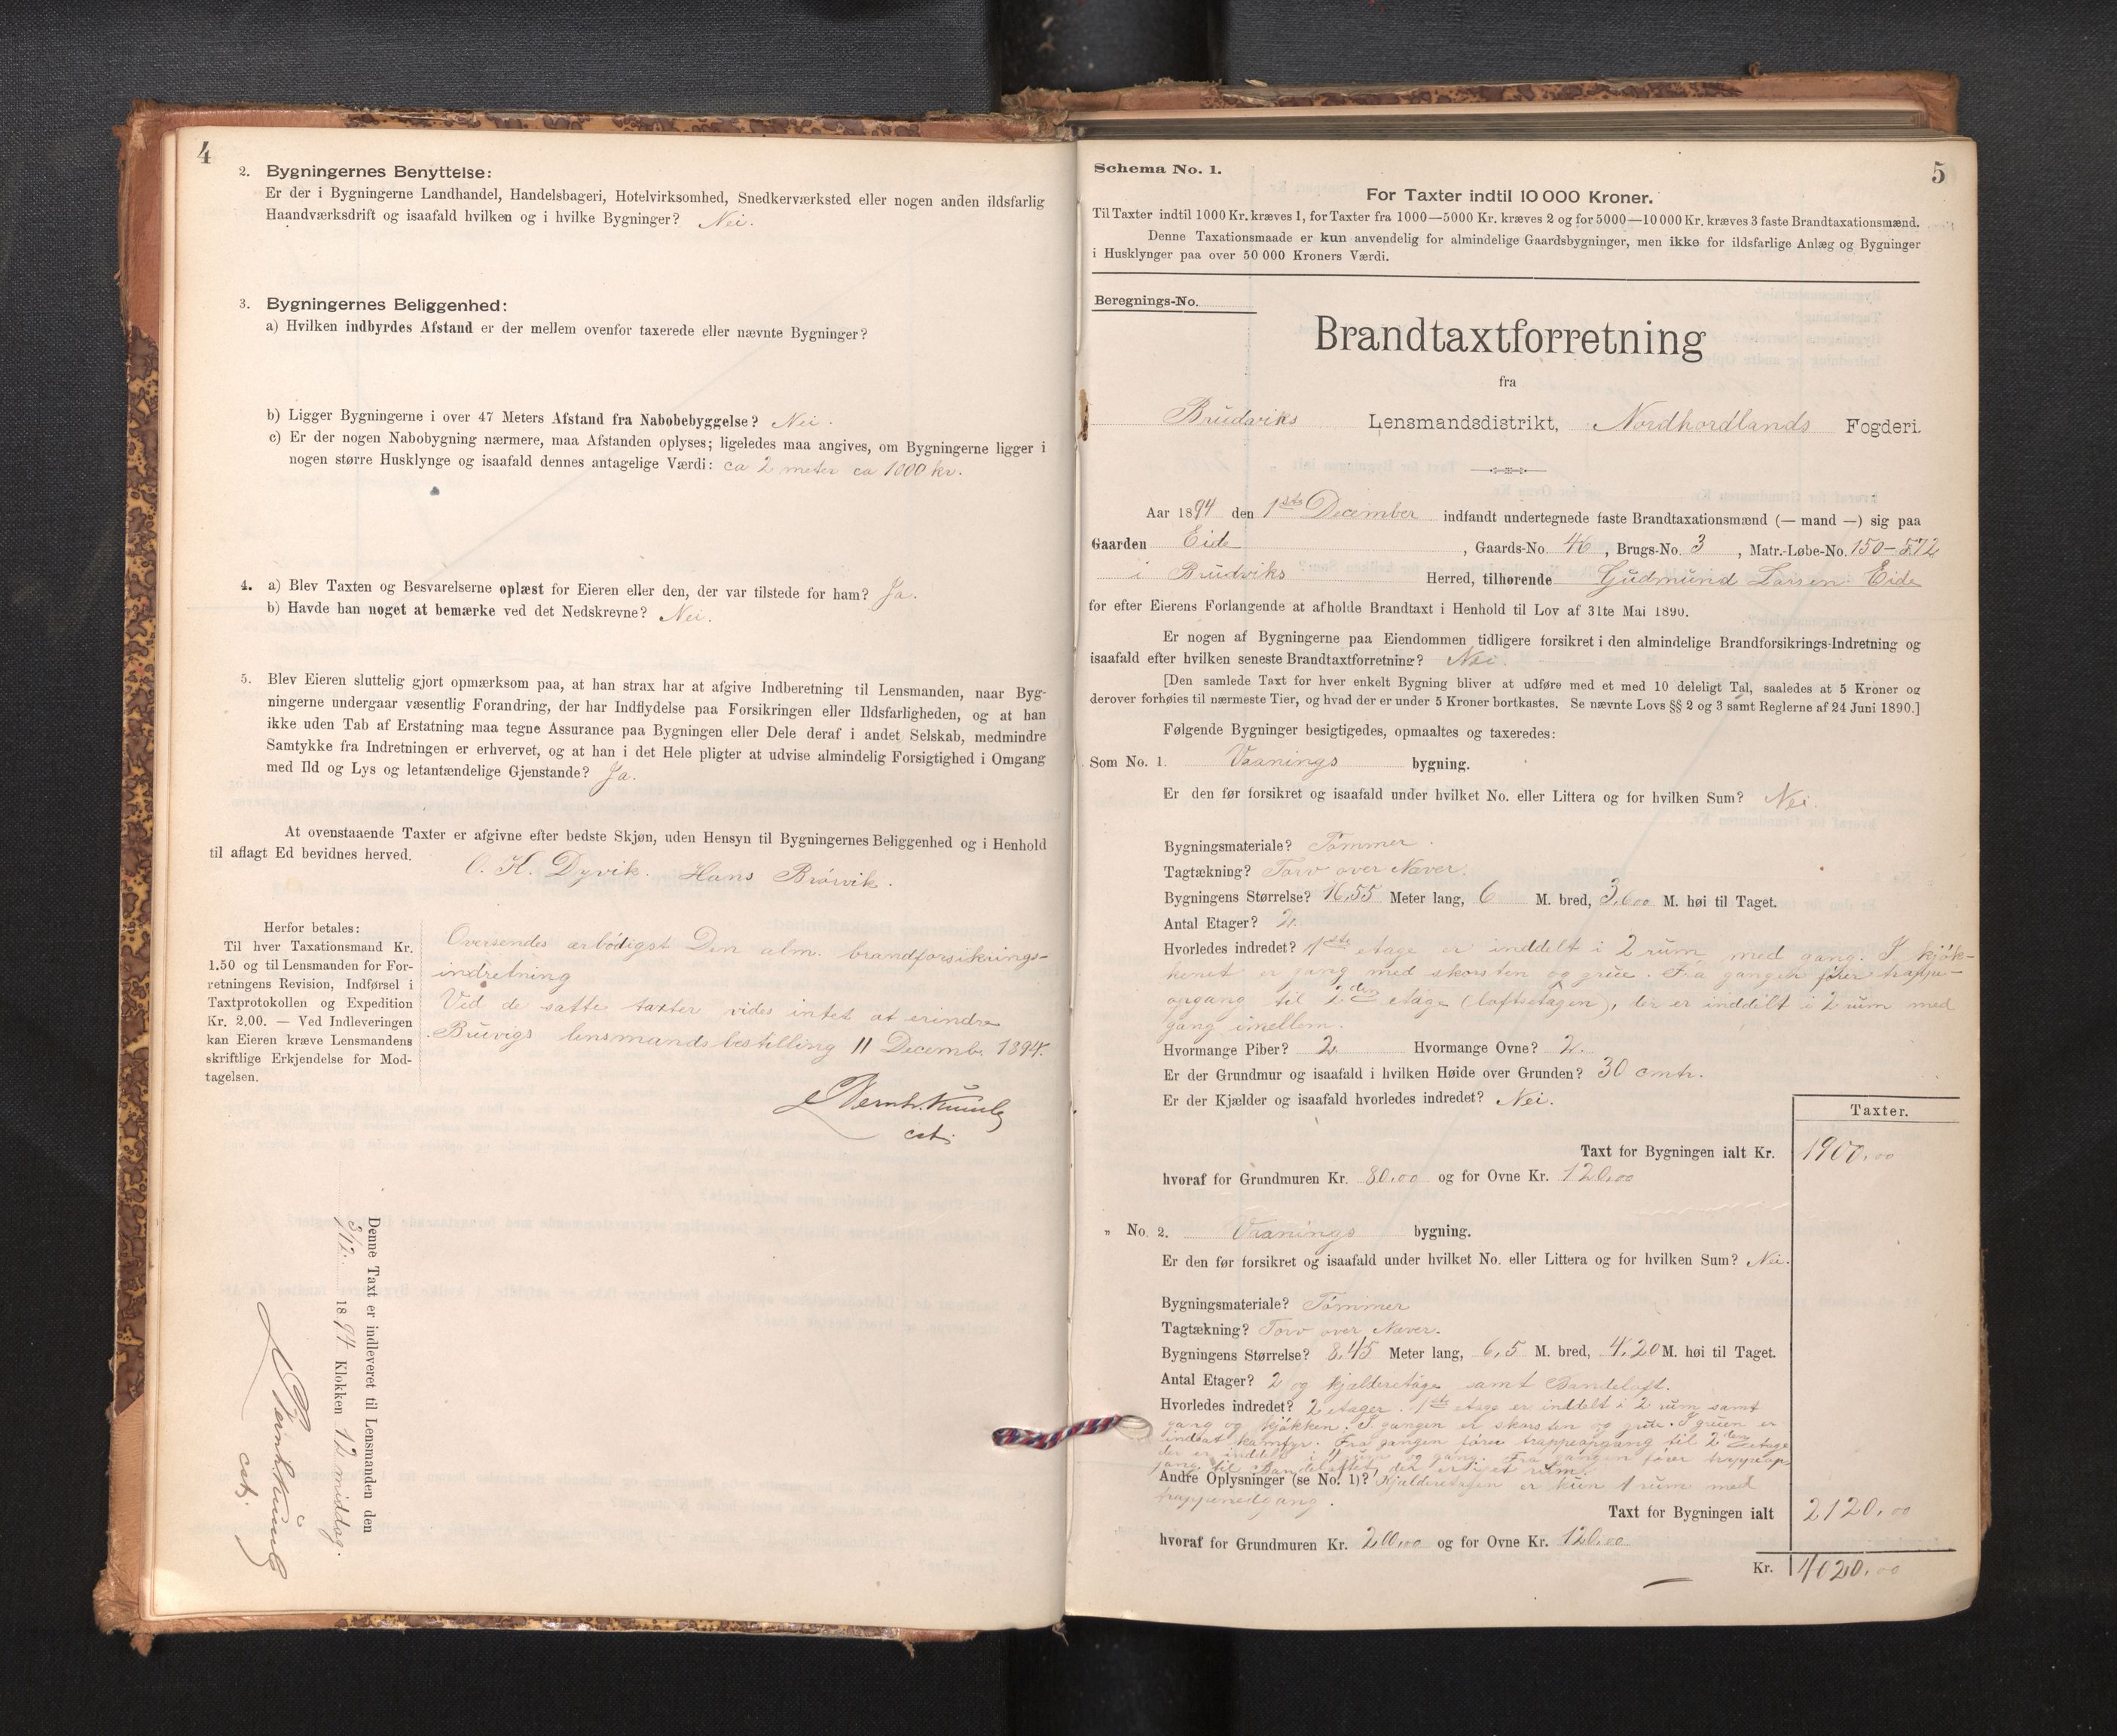 4
2. Bygningernes Benyttelse:
Er der i Bygningerne Landhandel, Handelsbageri, Hotelvirksomhed, Snedkerværksted eller nogen anden ildsfarlig
Haandværksdrift og isaafald hvilken og i hvilke Bygninger? Nei.
3. Bygningernes Beliggenhed:
a) Hvilken indbyrdes Afstand er der mellem ovenfor taxerede eller nævnte Bygninger?
b) Ligger Bygningerne i over 47 Meters Afstand fra Nabobebyggelse? Nei.
c) Er der nogen Nabobygning nærmere, maa Afstanden oplyses; ligeledes maa angives, om Bygningerne ligger i
nogen større Husklynge og isaafald dennes antagelige Værdi: ca 2 meter ca 1000 kr.
4. a) Blev Taxten og Besvarelserne oplæst for Eieren eller den, der var tilstede for ham? Ja.
b) Havde han noget at bemærke ved det Nedskrevne? Nei.
5. Blev Eieren sluttelig gjort opmærksom paa, at han strax har at afgive Indberetning til Lensmanden, naar Byg-
ningerne undergaar væsentlig Forandring, der har Indflydelse paa Forsikringen eller Ildsfarligheden, og at han
ikke uden Tab af Erstatning maa tegne Assurance paa Bygningen eller Dele deraf i andet Selskab, medmindre
Samtykke fra Indretningen er erhvervet, og at han i det Hele pligter at udvise almindelig Forsigtighed i Omgang
med Ild og Lys og letantændelige Gjenstande? Ja.
At ovenstaaende Taxter er afgivne efter bedste Skjøn, uden Hensyn til Bygningernes Beliggenhed og i Henhold
til aflagt Ed bevidnes herved. O. K. Dyvik. Hans Brøvik.
Herfor betales:
Til hver Taxationsmand Kr.
1.50 og til Lensmanden for For-
retningens Revision, Indførsel i
Taxtprotokollen og Expedition
Kr. 2.00. — Ved Indleveringen
kan Eieren kræve Lensmandens
skriftlige Erkjendelse for Mod-
tagelsen.
Oversendes ærbödigst Den alm. brandforsikrings-
indretning
Ved de satte taxter vides intet at erindre
Bruvigs lensmandsbestilling 11 Decemb. 1894.
cst.
Denne Taxt er indleveret til Lensmanden den
3/12. 1894 Klokken 12 middag.
cst.
5
Schema No. 1.
For Taxter indtil 10 000 Kroner.
Til Taxter indtil 1000 Kr. kræves 1, for Taxter fra 1000—5000 Kr. kræves 2 og for 5000—10 000 Kr. kræves 3 faste Brandtaxationsmænd.
Denne Taxationsmaade er kun anvendelig for almindelige Gaardsbygninger, men ikke for ildsfarlige Anlæg og Bygninger
i Husklynger paa over 50 000 Kroners Værdi.
Beregnings-No.
Brandtaxtforretning
fra
Brudviks Lensmandsdistrikt, Nordhordlands Fogderi.
Aar 1894 den 1ste December indfandt undertegnede faste Brandtaxationsmænd (— mand —) sig paa
Gaarden Eide, Gaards-No. 46, Brugs-No. 3, Matr.-Løbe-No. 150-572
i Brudviks Herred, tilhørende Gudmund Larsen Eide
for efter Eierens Forlangende at afholde Brandtaxt i Henhold til Lov af 31te Mai 1890.
Er nogen af Bygningerne paa Eiendommen tidligere forsikret i den almindelige Brandforsikrings-Indretning og
isaafald efter hvilken seneste Brandtaxtforretning? Nei.
[Den samlede Taxt for hver enkelt Bygning bliver at udføre med et med 10 deleligt Tal, saaledes at 5 Kroner og
derover forhøies til nærmeste Tier, og hvad der er under 5 Kroner bortkastes. Se nævnte Lovs §§ 2 og 3 samt Reglerne af 24 Juni 1890.]
Følgende Bygninger besigtigedes, opmaaltes og taxeredes:
Som No. 1. Vaanings bygning.
Er den før forsikret og isaafald under hvilket No. eller Littera og for hvilken Sum? Nei.
Bygningsmateriale? Tømmer.
Tagtækning? Torv over Næver.
Bygningens Størrelse? 16,55 Meter lang, 6 M. bred, 3,600 M. høi til Taget.
Antal Etager? 2.
Hvorledes indredet? 1ste etage er inddelt i 2 rum med gang. I kjøk-
kenet er gang med skorsten og grue. Fra gangen fører trappe-
opgang til 2den etage (loftsetagen), der er inddelt i 2 rum med
gang imellem.
Hvormange Piber? 2. Hvormange Ovne? 2.
Er der Grundmur og isaafald i hvilken Høide over Grunden? 30 cmtr.
Er der Kjælder og isaafald hvorledes indredet? Nei.
Taxter.
Taxt for Bygningen ialt Kr. 1900,00
hvoraf for Grundmuren Kr. 80,00 og for Ovne Kr. 120,00
" No. 2. Vaanings bygning.
Er den før forsikret og isaafald under hvilket No. eller Littera og for hvilken Sum? Nei.
Bygningsmateriale? Tømmer
Tagtækning? Torv over Næver.
Bygningens Størrelse? 8,45 Meter lang, 6,5 M. bred, 4,20 M. høi til Taget.
Antal Etager? 2 og kjælderetage samt Bandeloft.
Hvorledes indredet? 2 etager. 1ste etage er inddelt i 2 rum samt
gang og kjøkken. I gangen er skorsten og grue. I gruen er
indsat komfyr. Fra gangen fører trappeopgang til 2den etage
der er inddelt i 4 rum og gang. Fra gangen fører trappeop
gang til Bandeloftet, der er i et rum.
Andre Oplysninger (se No. 1)? Kjælderetagen er kun 1 rum med
trappenedgang.
Taxt for Bygningen ialt 2120,00
hvoraf for Grundmuren Kr. 200,00 og for Ovne Kr. 120,00
Kr. 4020,00